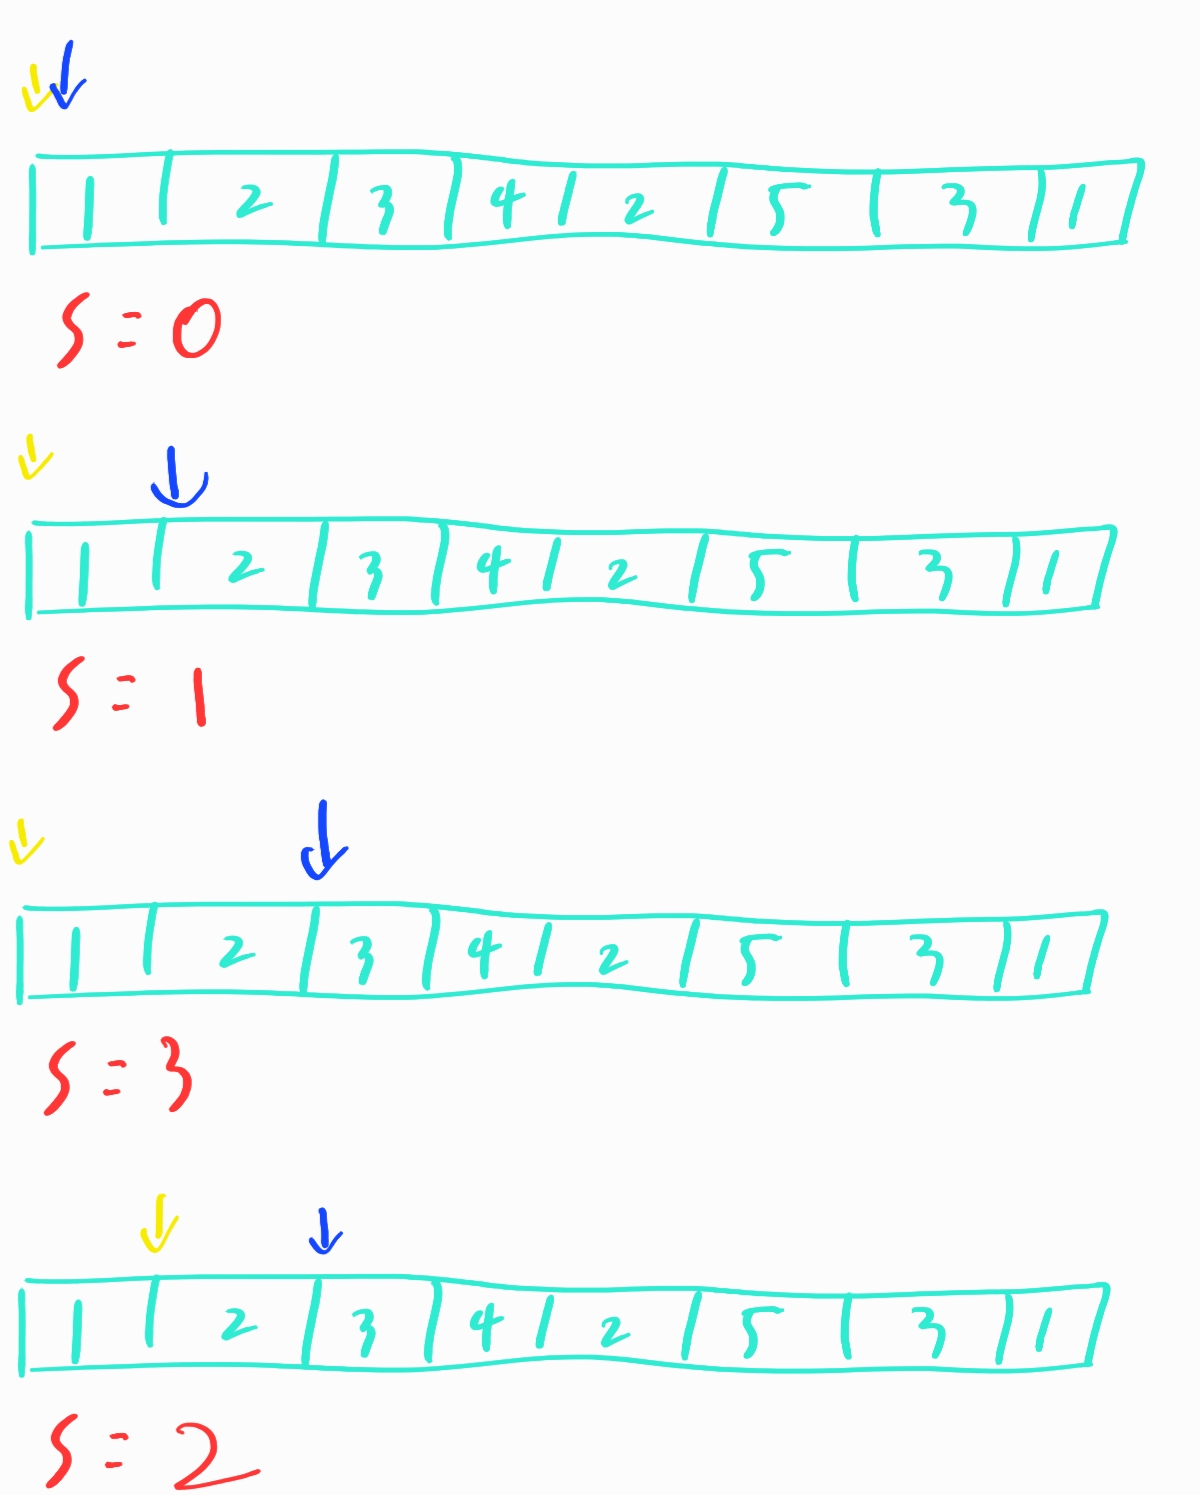 1 2 3 4 2 5 3 1
S = 0
1 2 3 4 2 5 3 1
S = 1
1 2 3 4 2 5 3 1
S = 3
1 2 3 4 2 5 3 1
S = 2